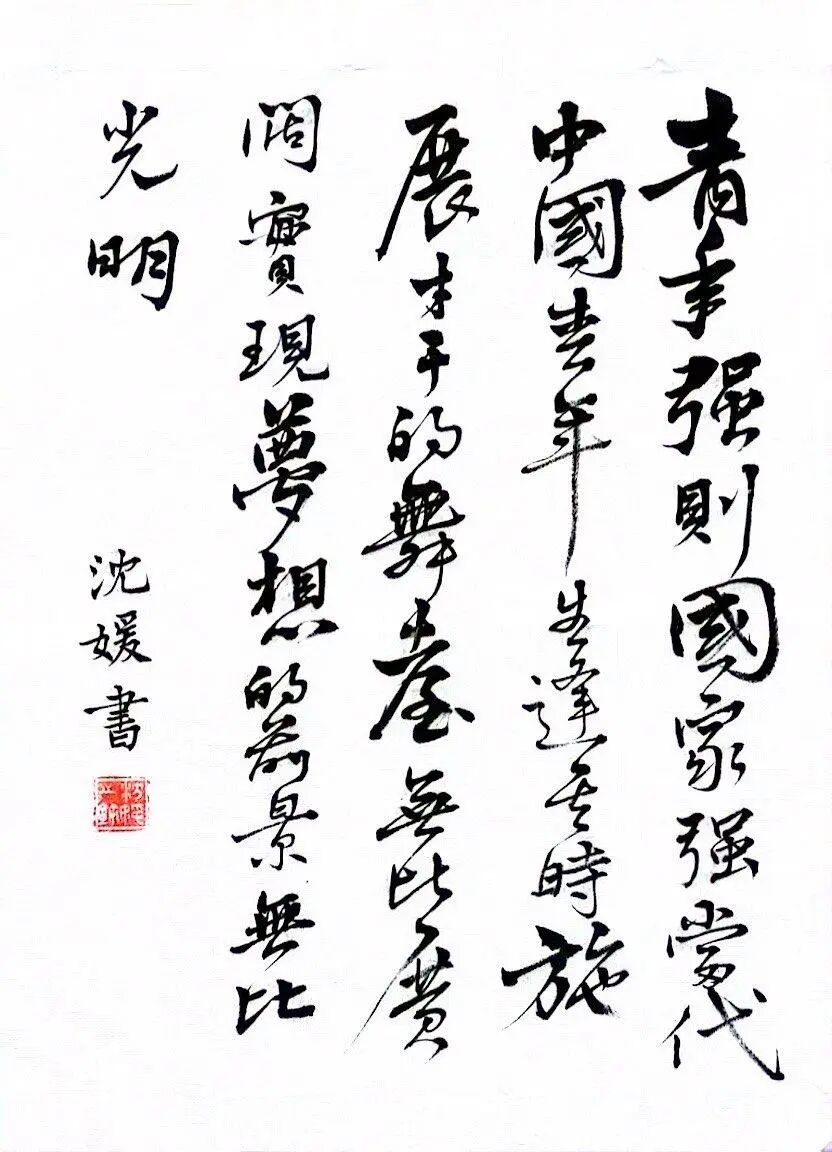 青年强則國家强當代
中國青年生逢其時施
展才干的舞臺無比廣
闊實現夢想的前景無比
光明
沈媛書